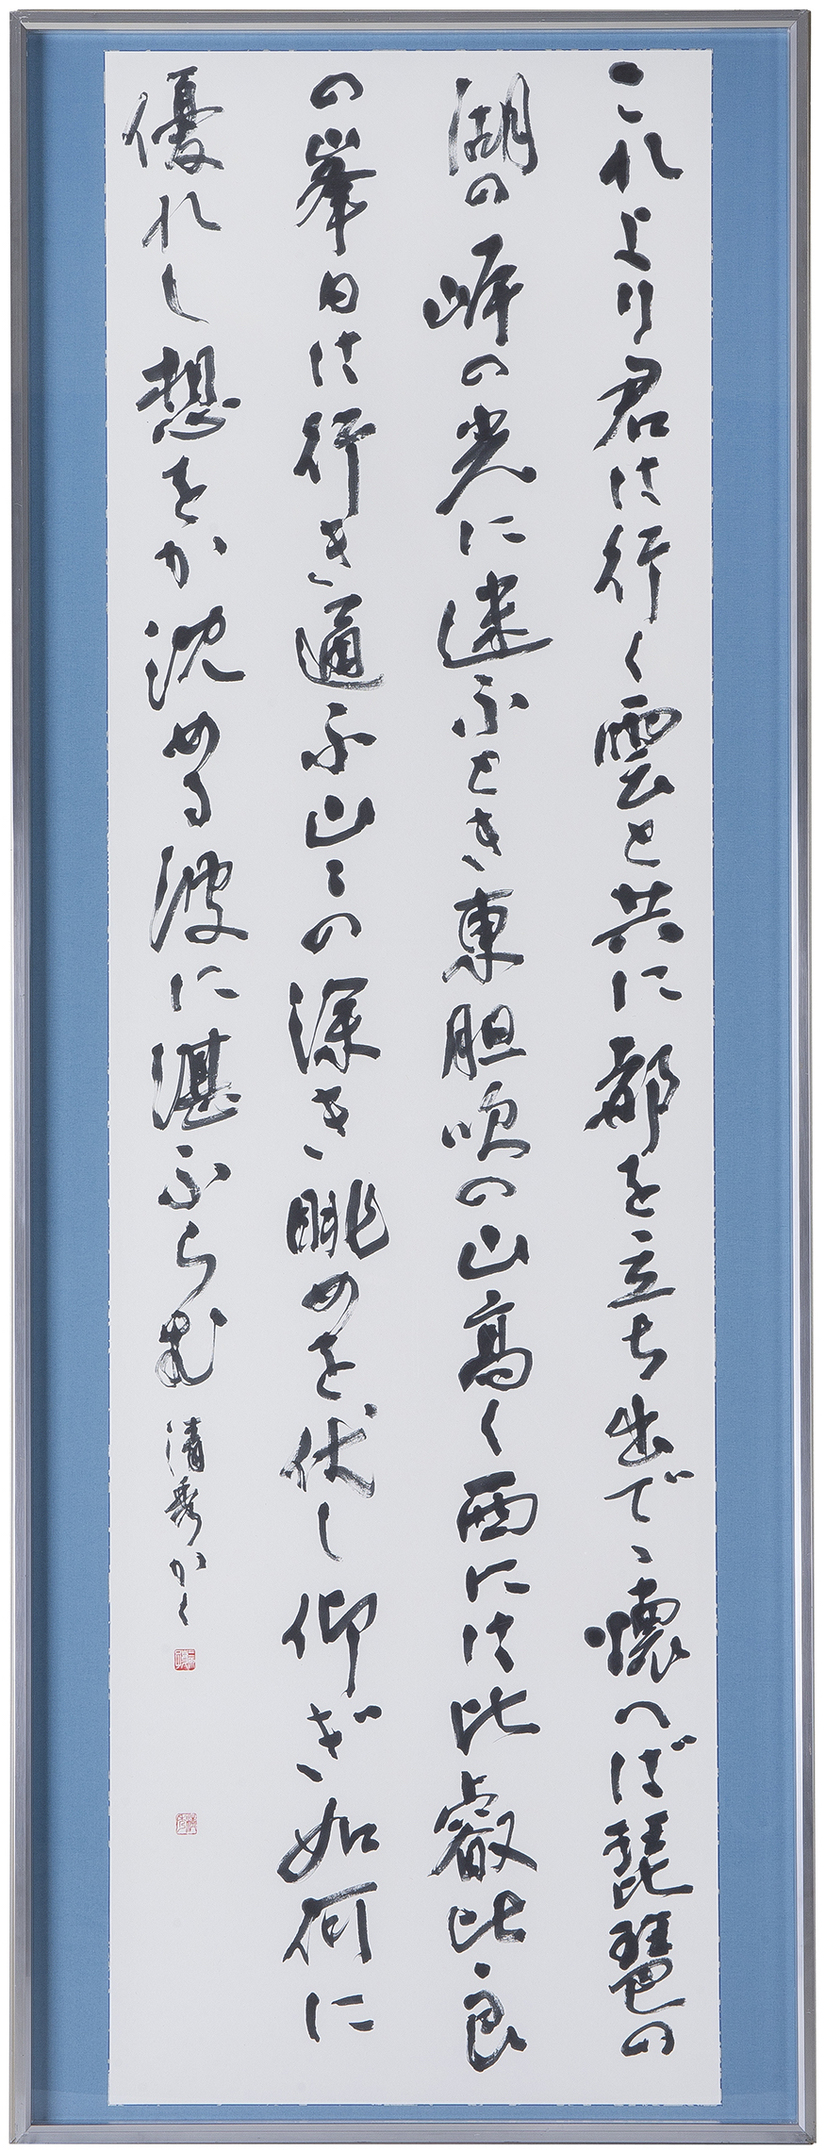 これより君は行く雲と共に都を立ち出でゝ懐へば琵琶の
湖の岸の光に迷ふとき東胆吹の山高く西には比叡比良
の峯日は行き通ふ山々の深き眺めを伏し仰ぎ如何に
優れし想をか沈める波に湛ふらむ 清秀かく